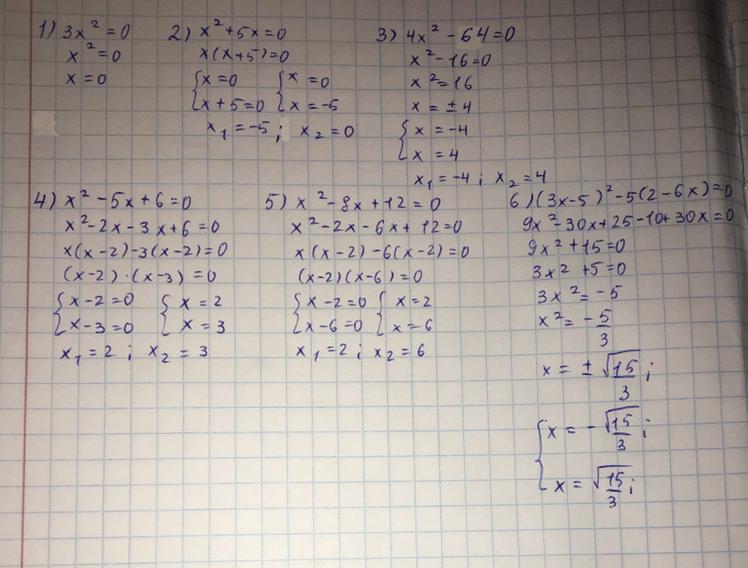 1) 3x² = 0
x² = 0
x = 0
2) x² + 5x = 0
x(x+5) = 0
{ x = 0 { x = 0
{ x + 5 = 0 { x = -5
x₁ = -5 ; x₂ = 0
3) 4x² - 64 = 0
x² - 16 = 0
x² = 16
x = ± 4
{ x = -4
{ x = 4
x₁ = -4 ; x₂ = 4
4) x² - 5x + 6 = 0
x² - 2x - 3x + 6 = 0
x(x-2) - 3(x-2) = 0
(x-2) · (x-3) = 0
{ x - 2 = 0 { x = 2
{ x - 3 = 0 { x = 3
x₁ = 2 ; x₂ = 3
5) x² - 8x + 12 = 0
x² - 2x - 6x + 12 = 0
x(x-2) - 6(x-2) = 0
(x-2)(x-6) = 0
{ x - 2 = 0 { x = 2
{ x - 6 = 0 { x = 6
x₁ = 2 ; x₂ = 6
6) (3x-5)² - 5(2-6x) = 0
9x² - 30x + 25 - 10 + 30x = 0
9x² + 15 = 0
3x² + 5 = 0
3x² = -5
x² = - 5/3
x = ± √15/3 i
{ x = - √15/3 i
{ x = √15/3 i